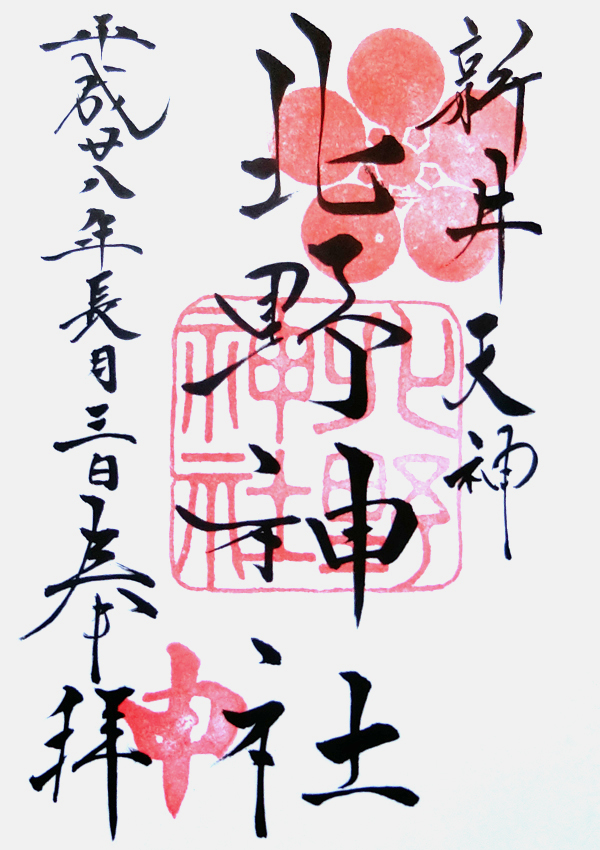 新井天神
北野神社
平成廿八年長月三日奉拝
北野神社
申